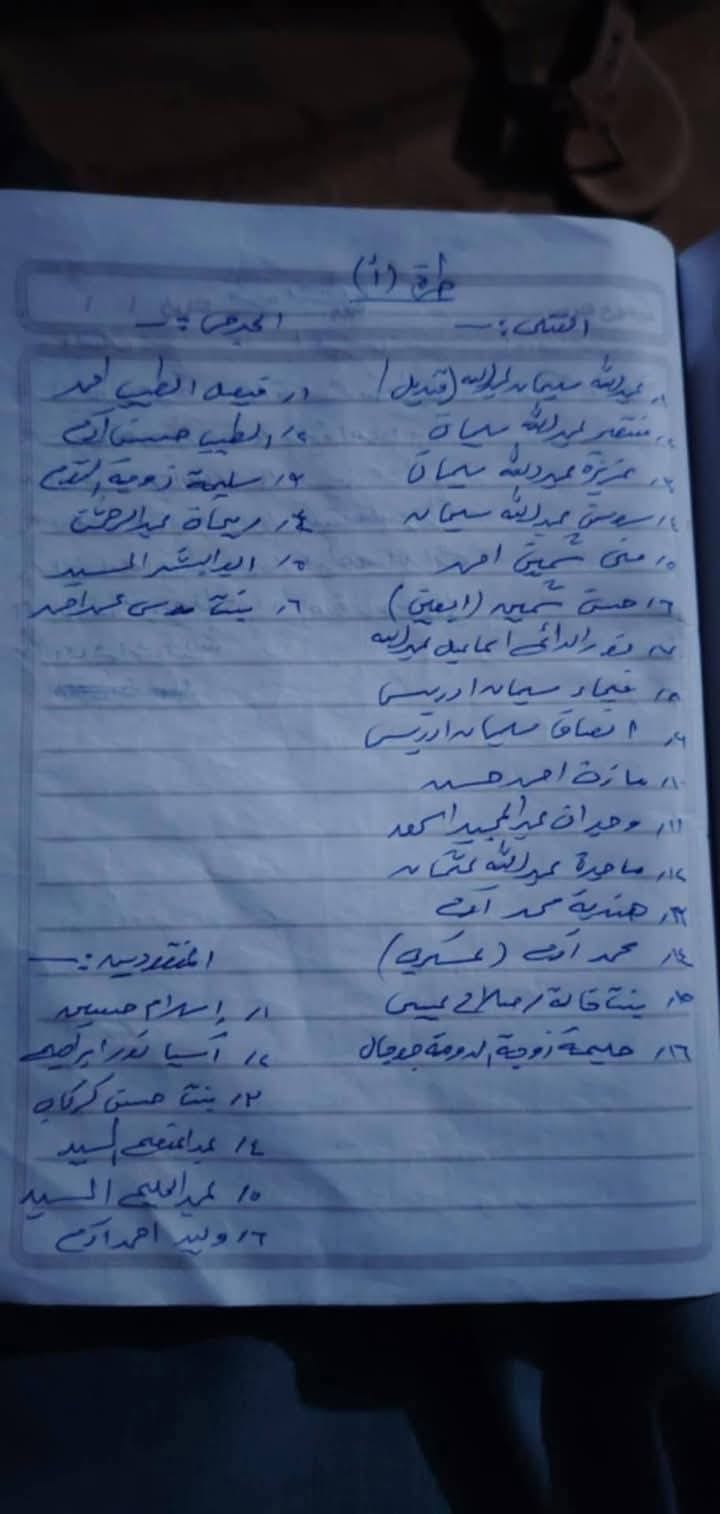 طرة (أ)
القتلى :-
١. عبدالله سليمان عبدالله (قنديل)
٢. منتصر عبدالله سليمان
٣. عزيزة عبدالله سليمان
٤. سوسن عبدالله سليمان
٥. منى شمين احمد
٦. حسن شمين
٧. نور الدائم اسماعيل عبدالله
٨. سليمان ادريس
٩. انصاف سليمان ادريس
١٠. مازن احمد حسين
١١. وجدان عبدالمجيد اسحق
١٢. ماجدة عبدالله عثمان
١٣. هندية محمد آدم
١٤. محمد آدم (عسكري)
١٥. بنت خالة / صلاح عيسى
١٦. حليمة زوجة الدومة جوجال
الجرحى :-
١. الطيب احمد
٢. الطيب حسن آدم
٣. سليمة زوجة التوم
٤. ريحانة عبدالرحمن
٥. السيد
٦. بنت موسى محمد احمد
المفقودين :-
١. إسلام حسين
٢. آسيا نور ابراهيم
٣. بنت حسن كركاب
٤. عبدالمنعم السيد
٥. عبدالحليم السيد
٦. وليد احمد آدم